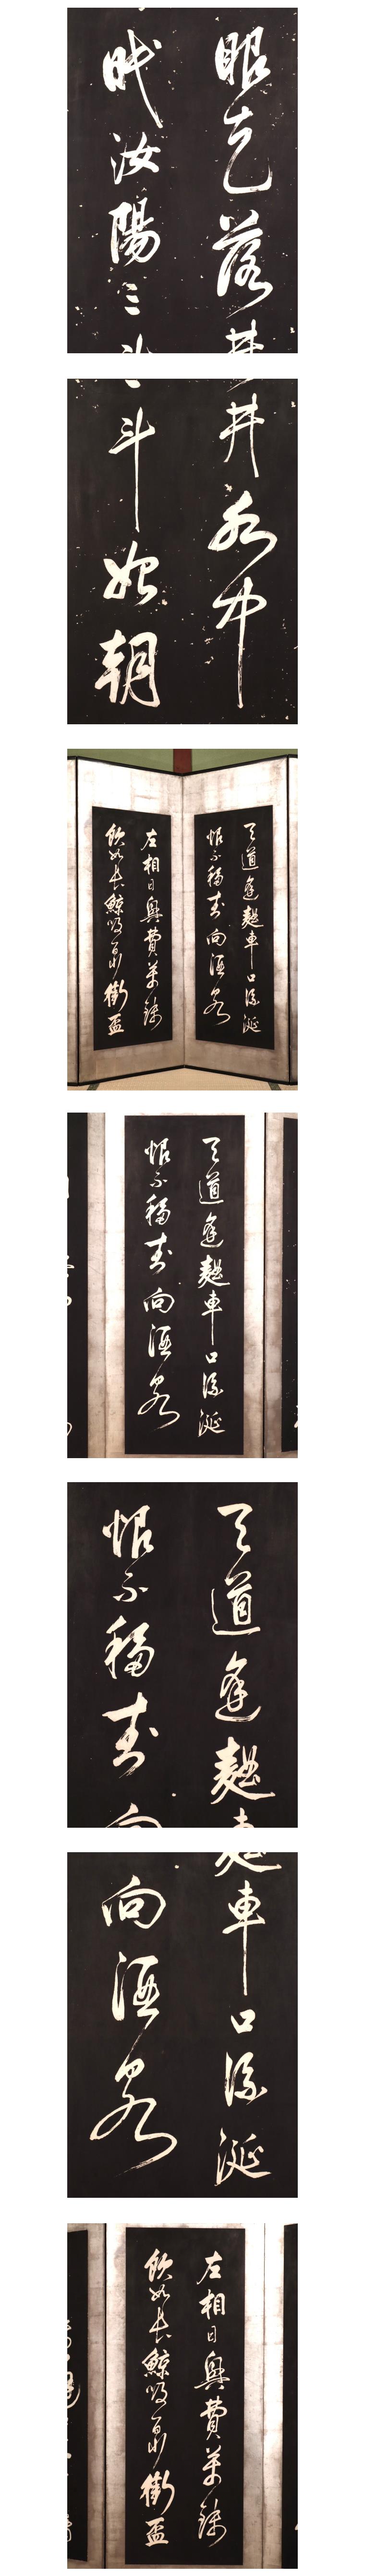 眼花落井
眠汝陽三斗
井水中
斗始朝
天道逢麴車口流涎
恨不移封向酒泉
左相日興費萬錢
飲如長鯨吸百川銜盃
天道逢麴車口流涎
恨不移封向酒泉
天道逢麴車
恨不移封向
麴車口流涎
向酒泉
左相日興費萬錢
飲如長鯨吸百川銜盃